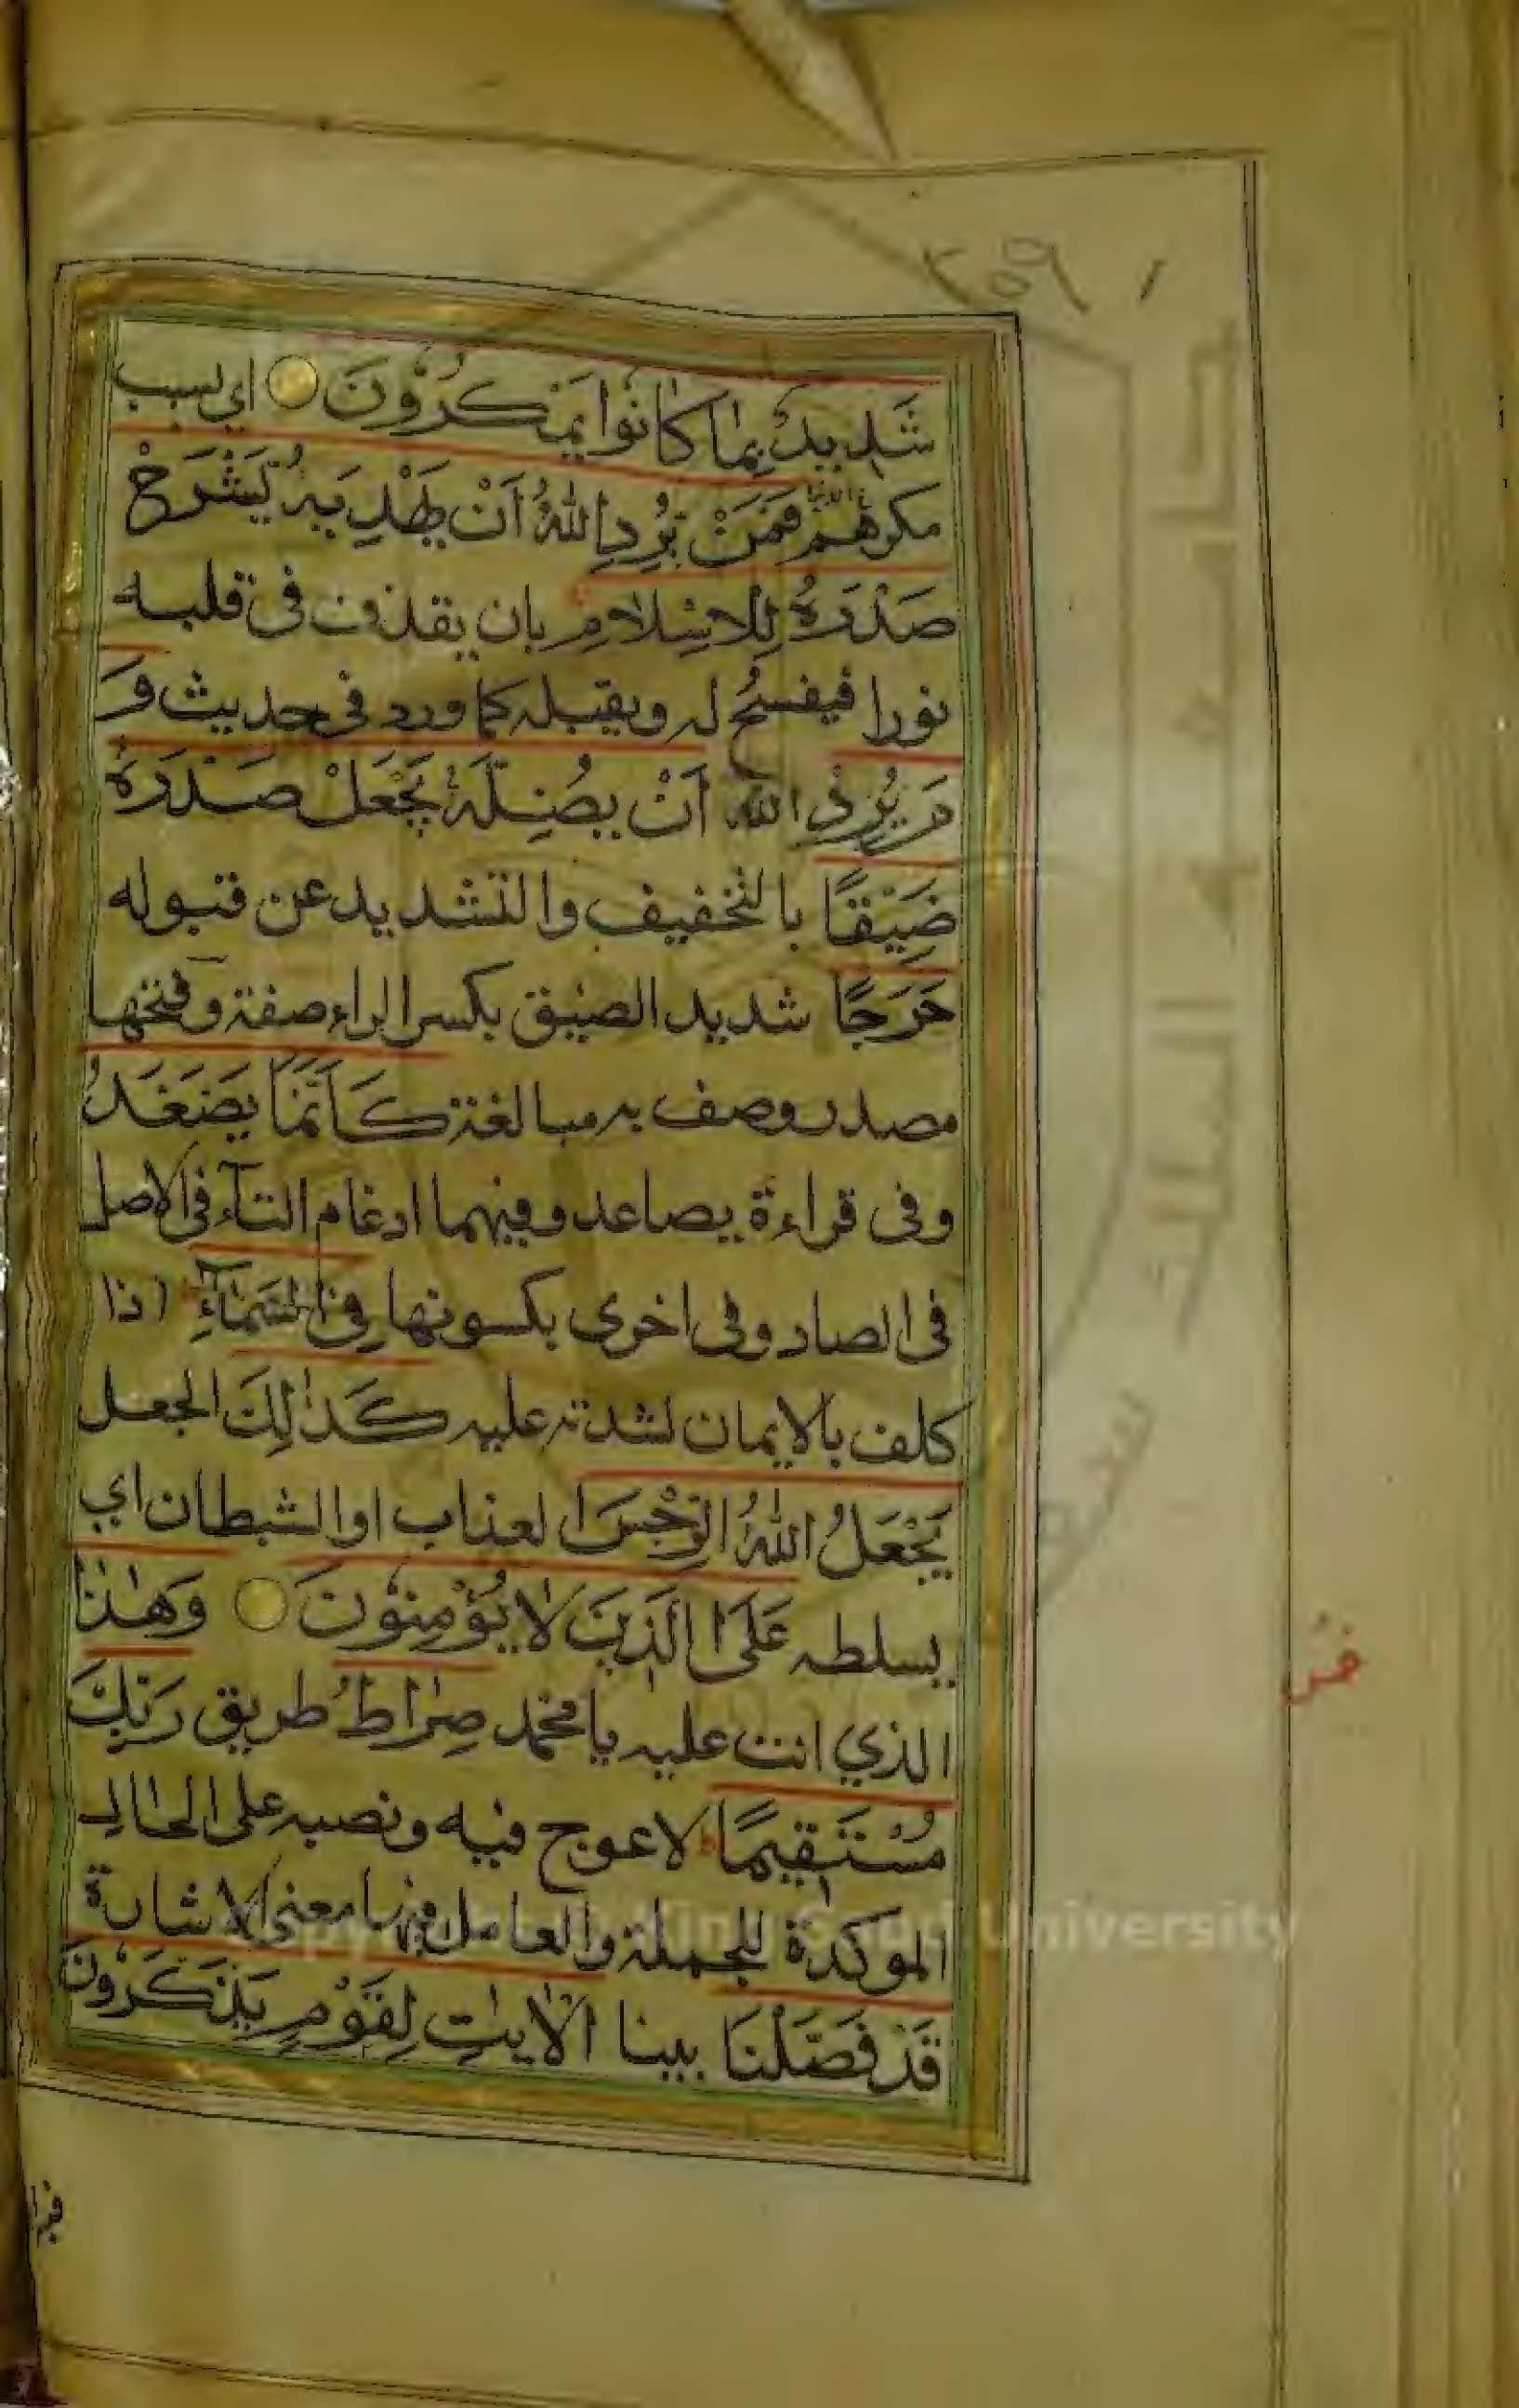 ٢٥٩
شَدِيدٌ بِمَا كَانُوا يَمْكُرُوْنَ اي بسبب
مكرهم فَمَنْ يُرِدِ اللّٰهُ اَنْ يَهْدِيَهُ يَشْرَحْ
صَدْرَهُ لِلْاِسْلَامِ بان يقذف فى قلبه
نورا فيفسح له ويقبله كما ورد فى حديث وَ
مَنْ يُرِدِ اللّٰه اَنْ يُضِلَّهُ يَجْعَلْ صَدْرَهُ
ضَيِّقًا بالتخفيف والتشديد عن قبوله
حَرَجًا شديد الضيق بكسر الراء صفة وفتحها
مصدر وصف به مبالغة كَاَنَّمَا يَصَّعَّدُ
وفى قراءة يصاعد وفيهما ادغام التآء فى الاصل
فى الصاد وفى اخرى بكسونها فِى السَّمَآءِ اذا
كلف بالايمان لشدته عليه كَذٰلِكَ الجعل
يَجْعَلُ اللّٰهُ الرِّجْسَ العذاب او الشيطان اي
يسلطه عَلَى الَّذِيْنَ لَا يُؤْمِنُوْنَ وَهٰذَا
الذي انت عليه يا محمد صِرَاطُ طريق رَبِّكَ
مُسْتَقِيمًا لا عوج فيه ونصبه على الحال
الموكدة للجملة والعامل فيها معنى الاشارة
قَدْ فَصَّلْنَا بينا الْاٰيٰتِ لِقَوْمٍ يَذَّكَّرُوْنَ
جامعة الملك سعود
Copyright © King Saud University